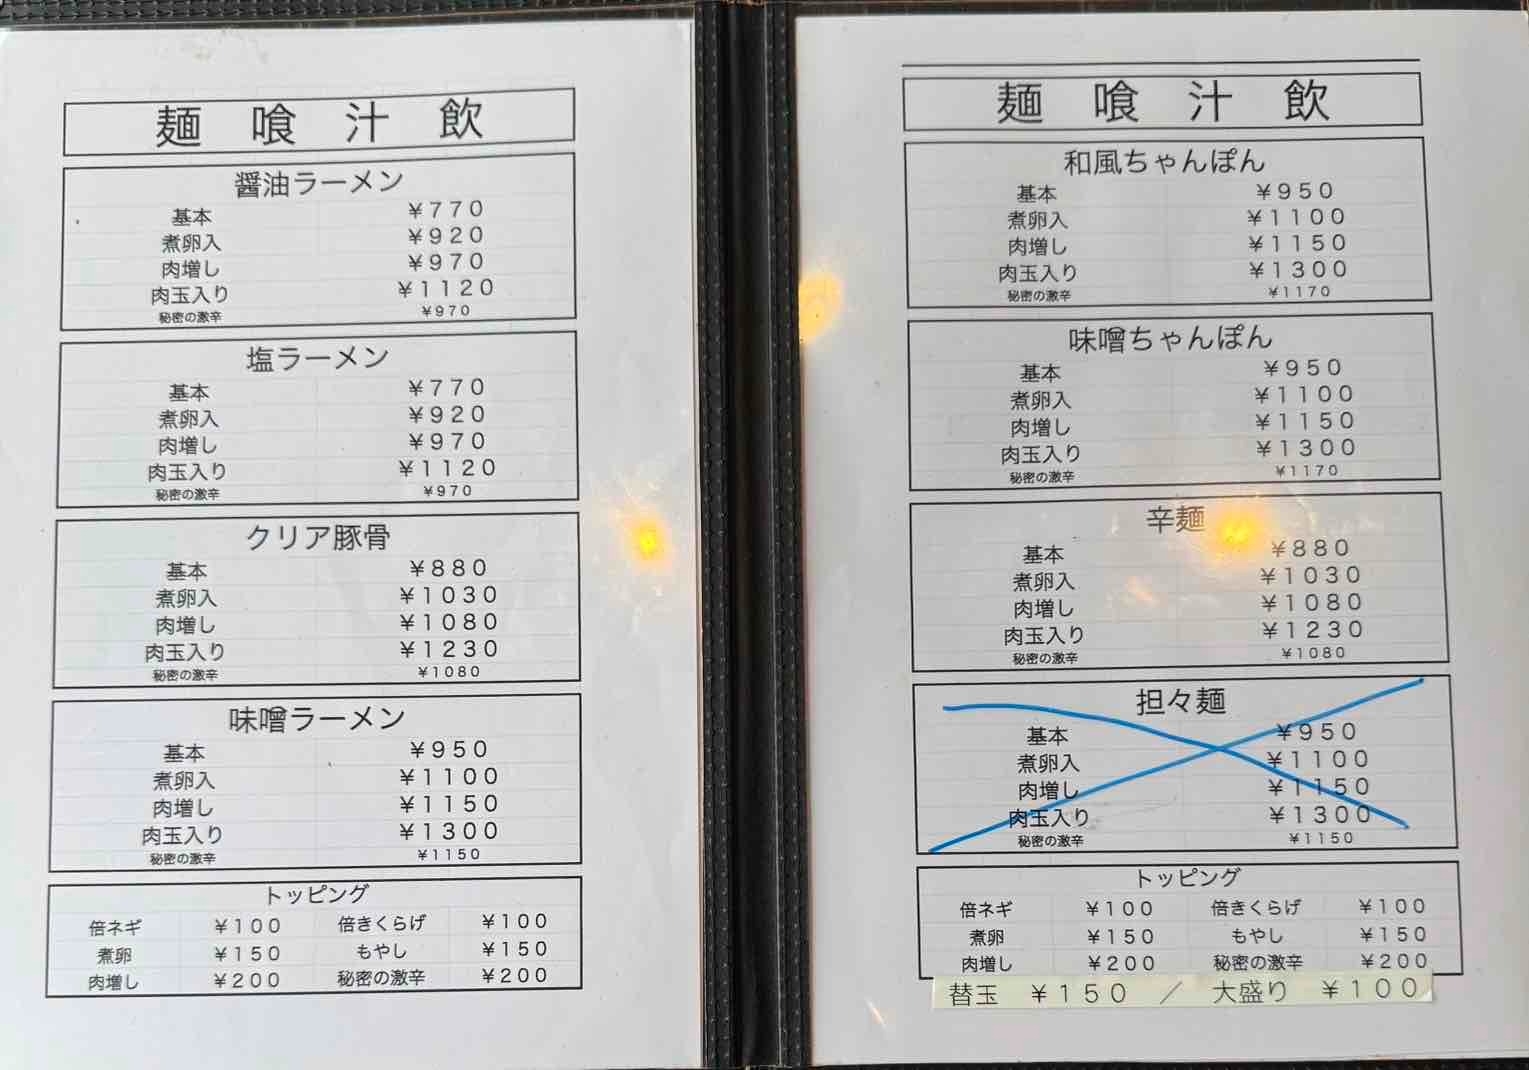 麺 喰 汁 飲
醤油ラーメン
基本 ¥770
煮卵入 ¥920
肉増し ¥970
肉玉入り ¥1120
秘密の激辛 ¥970
塩ラーメン
基本 ¥770
煮卵入 ¥920
肉増し ¥970
肉玉入り ¥1120
秘密の激辛 ¥970
クリア豚骨
基本 ¥880
煮卵入 ¥1030
肉増し ¥1080
肉玉入り ¥1230
秘密の激辛 ¥1080
味噌ラーメン
基本 ¥950
煮卵入 ¥1100
肉増し ¥1150
肉玉入り ¥1300
秘密の激辛 ¥1150
トッピング
倍ネギ ¥100 倍きくらげ ¥100
煮卵 ¥150 もやし ¥150
肉増し ¥200 秘密の激辛 ¥200
麺 喰 汁 飲
和風ちゃんぽん
基本 ¥950
煮卵入 ¥1100
肉増し ¥1150
肉玉入り ¥1300
秘密の激辛 ¥1170
味噌ちゃんぽん
基本 ¥950
煮卵入 ¥1100
肉増し ¥1150
肉玉入り ¥1300
秘密の激辛 ¥1170
辛麺
基本 ¥880
煮卵入 ¥1030
肉増し ¥1080
肉玉入り ¥1230
秘密の激辛 ¥1080
担々麺
基本 ¥950
煮卵入 ¥1100
肉増し ¥1150
肉玉入り ¥1300
秘密の激辛 ¥1150
トッピング
倍ネギ ¥100 倍きくらげ ¥100
煮卵 ¥150 もやし ¥150
肉増し ¥200 秘密の激辛 ¥200
替玉 ¥150 ／ 大盛り ¥100